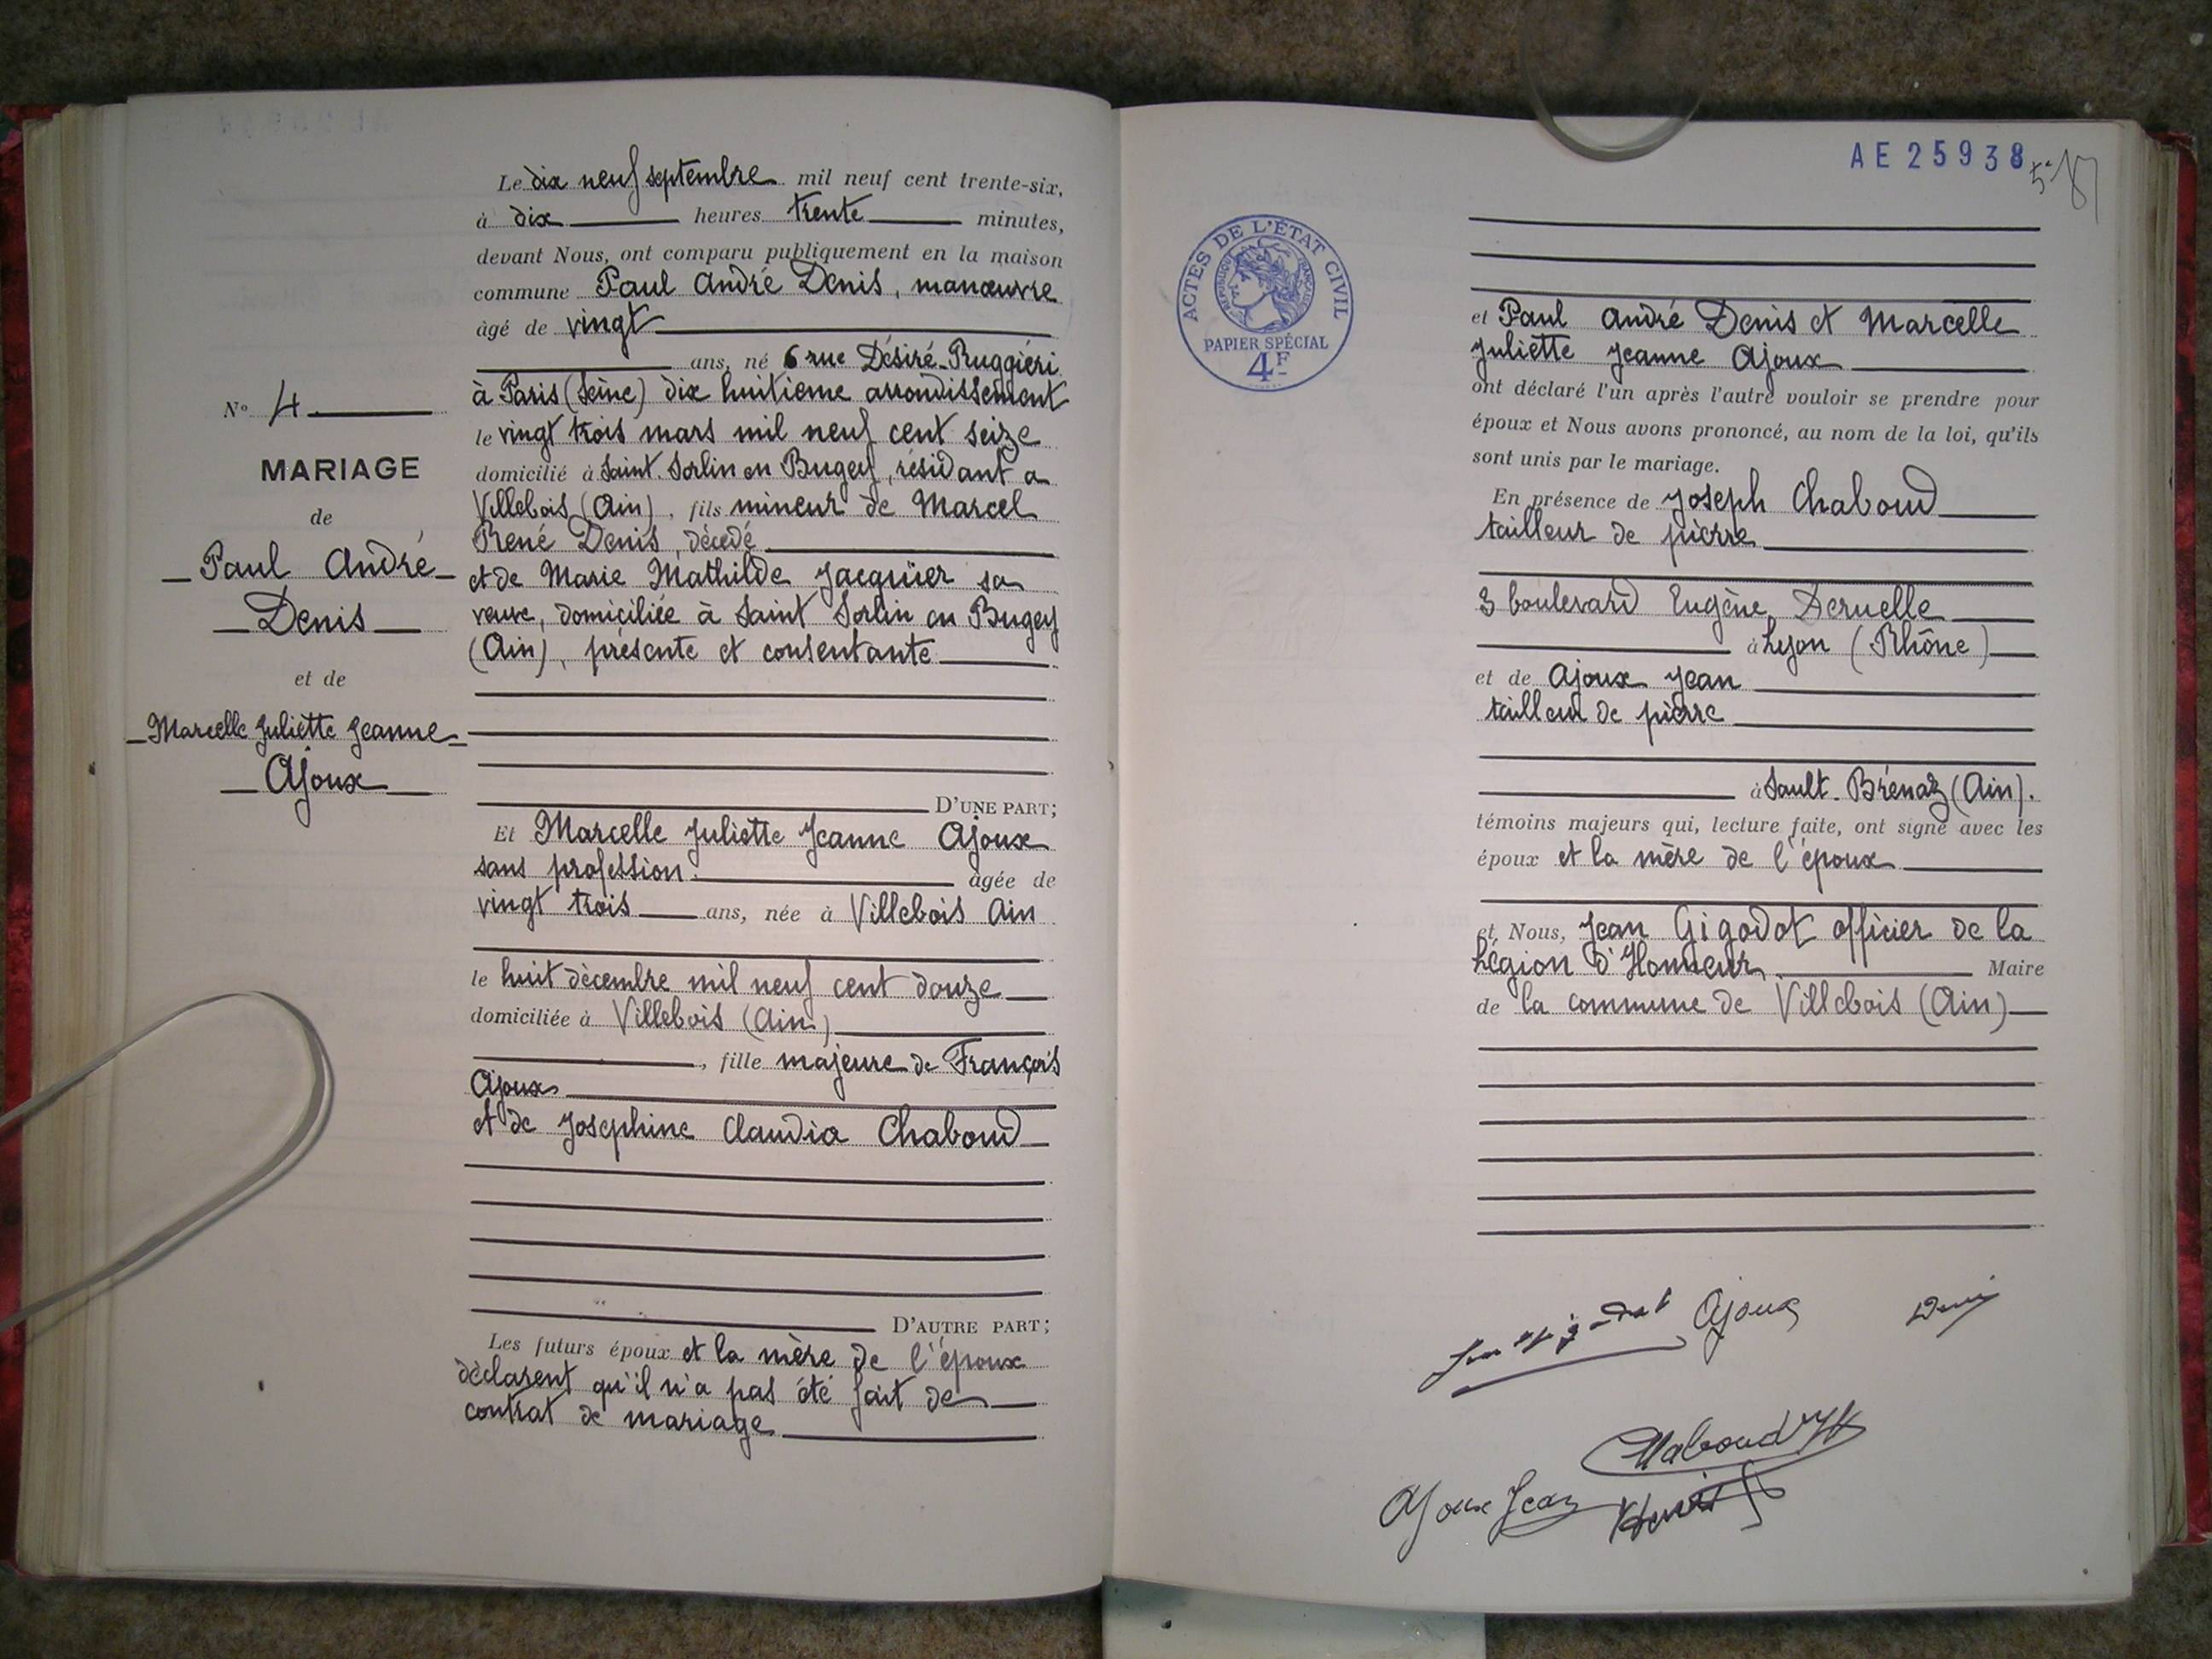 Le dix neuf septembre mil neuf cent trente-six,
à dix heures trente minutes,
devant Nous, ont comparu publiquement en la maison
commune Paul André Denis, manœuvre
âgé de vingt
ans, né 6 rue Désiré-Ruggiéri
à Paris (Seine) dix huitième arrondissement
le vingt trois mars mil neuf cent seize
domicilié à Saint-Sorlin en Bugey, résidant a
Villebois (Ain), fils mineur de Marcel
René Denis, décédé
et de Marie Mathilde Jacquier sa
veuve, domiciliée à Saint Sorlin en Bugey
(Ain), présente et consentante
D'UNE PART;
Et Marcelle Juliette Jeanne Ajoux
sans profession. âgée de
vingt trois ans, née à Villebois Ain
le huit décembre mil neuf cent douze
domiciliée à Villebois (Ain)
, fille majeure de François
Ajoux
et de Josephine Claudia Chaboud
D'AUTRE PART;
Les futurs époux et la mère de l'époux
déclarent qu'il n'a pas été fait de
contrat de mariage
N° 4
MARIAGE
de
Paul André
Denis
et de
Marcelle Juliette Jeanne
Ajoux
AE 25938
ACTES DE L'ÉTAT CIVIL
RÉPUBLIQUE FRANÇAISE
PAPIER SPÉCIAL
4F
et Paul André Denis et Marcelle
Juliette Jeanne Ajoux
ont déclaré l'un après l'autre vouloir se prendre pour
époux et Nous avons prononcé, au nom de la loi, qu'ils
sont unis par le mariage.
En présence de Joseph Chaboud
tailleur de pierre
3 boulevard Eugène Deruelle
à Lyon (Rhône)
et de Ajoux Jean
tailleur de pierre
à Sault-Brénaz (Ain).
témoins majeurs qui, lecture faite, ont signé avec les
époux et la mère de l'époux
et Nous, Jean Gigodot officier de la
Légion d'Honneur, Maire
de la commune de Villebois (Ain)
Ajoux
Denis
Chaboud
Ajoux Jean